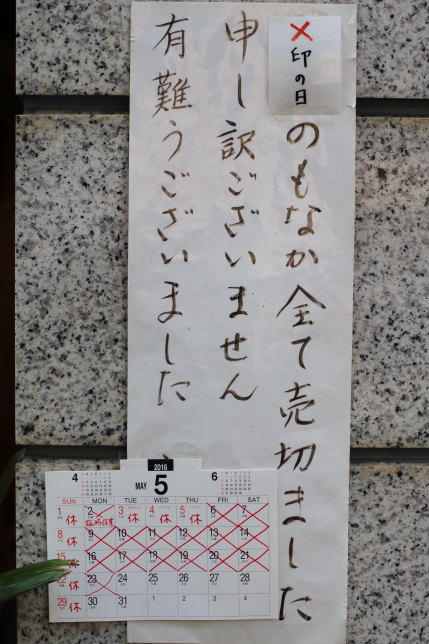 ×印の日
のもなか全て売切ました
申し訳ございません
有難うございました
4 2016 MAY 5 6
SUN MON TUE WED THU FRI SAT
1 休 2 臨時休業 3 休 4 休 5 休 6 7
8 休 9 10 11 12 13 14
15 16 17 18 19 20 21
22 休 23 24 25 26 27 28
29 休 30 31 1 2 3 4